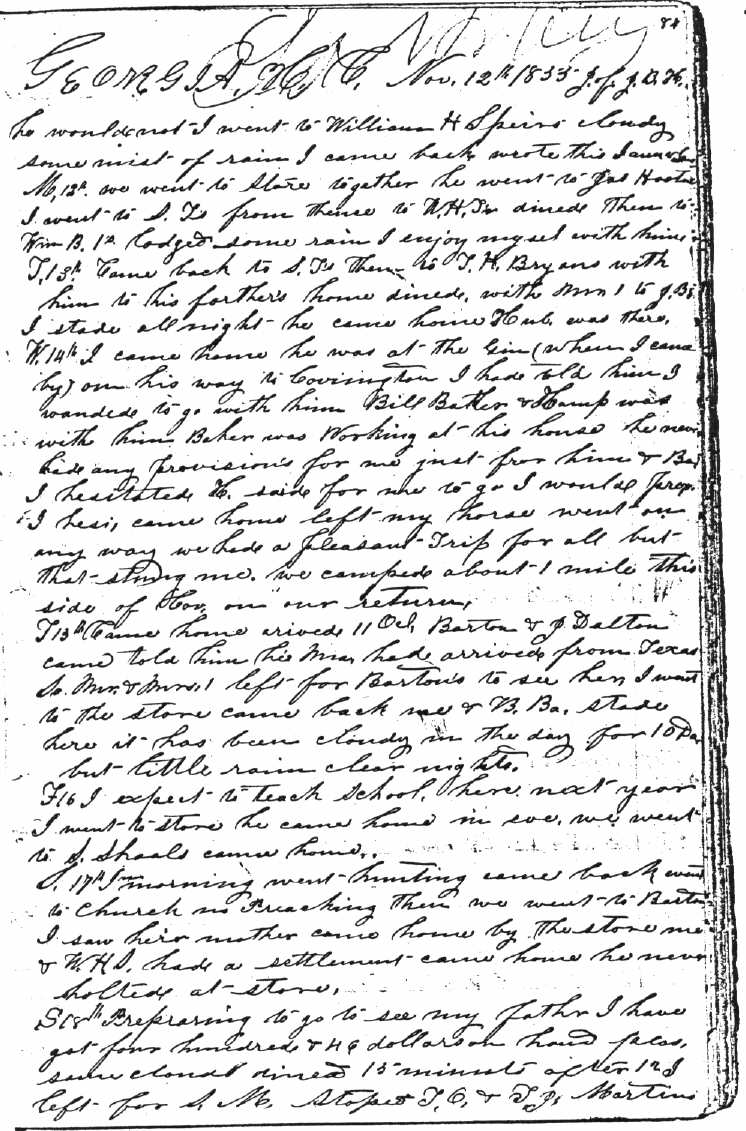 84
GEORGIA, N. C. Nov. 12th 1855 J. of J. B. H.
he would not I went to William H Speirs cloudy
some mist of rain I came back wrote this
M, 12th. we went to Store together he went to Jas
I went to S. Ts from thence to W. H. Ss dined then to
Wm B. 1st lodged some rain I enjoy mysel with him
T, 13th Came back to S. Ts then to T. H. Bryans with
him to his farther's home dined, with Mrs 1 to J. Bs.
I stade all night he came home Hub. was there.
W. 14th I came home he was at the Gin (when I came
by) on his way to Covington I hade told him I
wanded to go with him Bill Baker & Hamp was
with him Baker was Working at his house he never
hade any provision's for me just for him & Ba
I hesitated H. said for me to go I would prep.
I hesi, came home left my horse went on
any way we hade a pleasant Trip for all but
that stung me. we camped about 1 mile this
side of Cov. on our return,
T 15th Came home arived 11 Ocl, Barton & J. Dalton
came told him his Ma, had arrived from Texas
So Mr. & Mrs. 1 left for Barton's to see her, I went
to the store came back me & B. Ba. stade
here it has been cloudy in the day for 10 Da
but little rain clear nights.
F 16 I expect to teach School, here next year
I went to store he came home in eve. we went
to S. Shoals came home..
S. 17th I morning went hunting came back went
to Church no Preaching then we went to Barton
I saw heir mother came home by the store me
& W. H S. had a settlement came home he never
holted at store.
S 18th Preprairing to go to see my father I have
got four hundred & 46 dollars on hand pleas,
some cloud dined 15 minuts after 12 I
left for S. M. Stoped T. C. & T. Js Martins